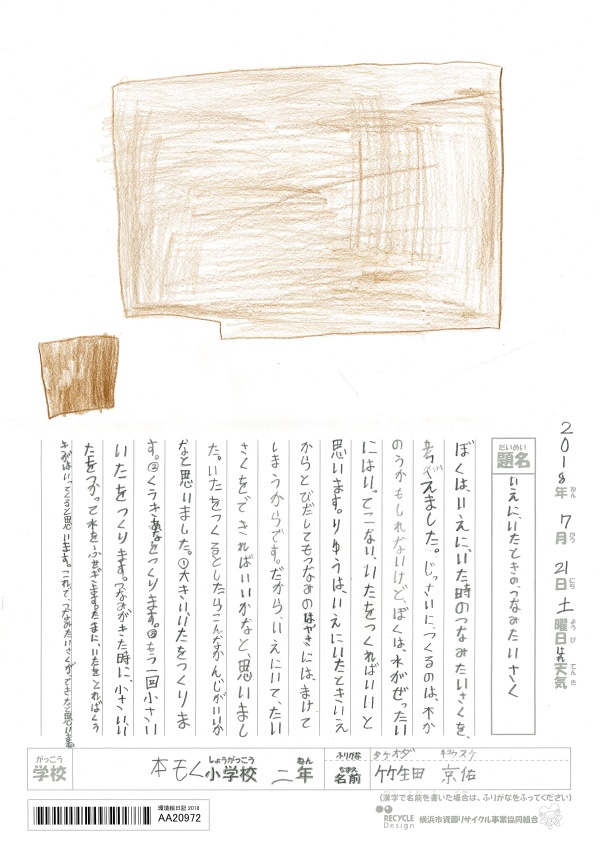 2018年 7月 21日 土曜日 天気 はれ
ねん がつ にち よう び てん き
だいめい
題名
いえに、いたときの、つなみたいさく
ぼくは、いえに、いた時のつなみたいさくを、
えました。じっさいに、つくるのは、木か
のうかもしれないけど、ぼくは、水がぜったい
にはいってこない、いたをつくればいいと
思います。りゆうは、いえにいたときいえ
からとびだしてもつなみのはやさには、まけて
しまうからです。だから、いえにいて、たい
さくを、できればいいかなと、思いまし
た。いたをつくるとしたらこんなかんじがいいか
なと思いました。①大きい、いたをつくりま
す。②くうきあなをつくります。③もう一回小さい
いたをつくります。つなみがきた時に、小さい、い
たをつかって水をふせぎます。たまに、いたをとればくう
きがはいってくると思います。これで、つなみたいさくができたと思います。
がっこう
学校
本もく小学校 二年
しょうがっこう ねん
ふりがな タケオダ キョウスケ
なまえ
名前 竹生田 京佑
(漢字で名前を書いた場合は、ふりがなをふってください)
環境絵日記 2018
AA20972
RECYCLE Design 横浜市資源リサイクル事業協同組合